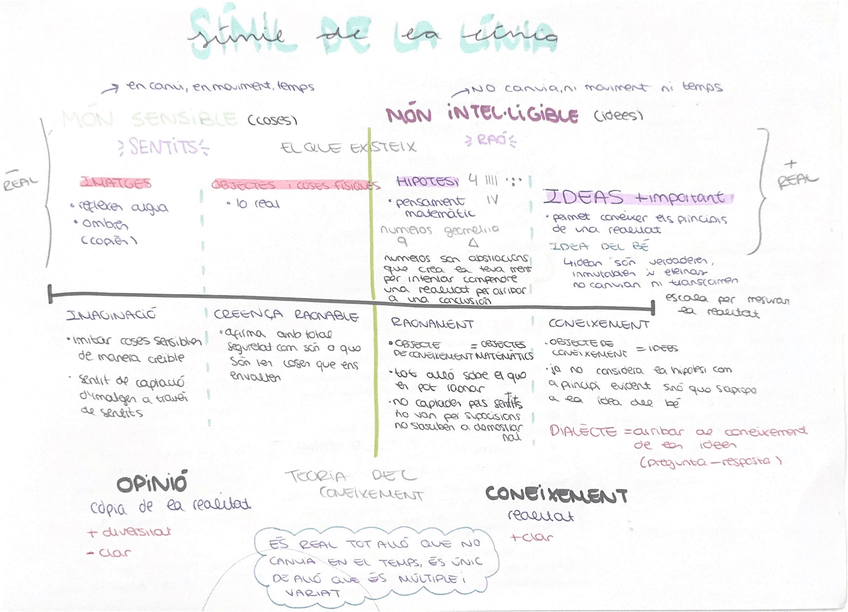 SÍMIL DE LA LÍNIA
símil de la línia
en canvi, en moviment, temps
NO canvia, ni moviment ni temps
MÓN SENSIBLE (coses)
MÓN INTEL·LIGIBLE (idees)
SENTITS
EL QUE EXISTEIX
RAÓ
- REAL
+ REAL
IMATGES
• reflexes aigua
• ombres
(còpies)
OBJECTES i COSES FÍSIQUES
• lo real
HIPOTESI 4 IIII ::
IV
• pensament
matemàtic
números geometria
9 △
números son abstraccions
que crea la teva ment
per intentar comprendre
una realitat per arribar
a una conclusión
IDEAS + important
• permet conèixer els principis
de una realitat
IDEA DEL BÉ
idees són verdaderes,
inmutables i eternes
no canvian ni
escala per mesurar
la realitat
IMAGINACIÓ
• imitar coses sensibles
de manera creible
• sentit de captació
d'imatges a través
de sentits
CREENÇA RAONABLE
• afirma amb total
seguretat com són o que
són les coses que ens
envolten
RAONAMENT
• OBJECTE = OBJECTES
DE CONEIXEMENT MATEMÀTICS
• tot allò sobre el que
es pot raonar
• no captades pels sentits
no van per suposicions
no s'acaben a demostrar
CONEIXEMENT
• OBJECTE DE
CONEIXEMENT = IDEES
• ja no considera la hipotesi com
a principi evident sinó que s'apropa
a la idea del bé
DIALÈCTE = arribar al coneixement
de les idees
(pregunta - resposta)
TEORIA DEL
CONEIXEMENT
OPINIÓ
còpia de la realitat
+ diversitat
- clar
CONEIXEMENT
realitat
+ clar
ÉS REAL TOT ALLÒ QUE NO
CANVIA EN EL TEMPS, ÉS ÚNIC
DE ALLÒ QUE ÉS MÚLTIPLE I
VARIAT